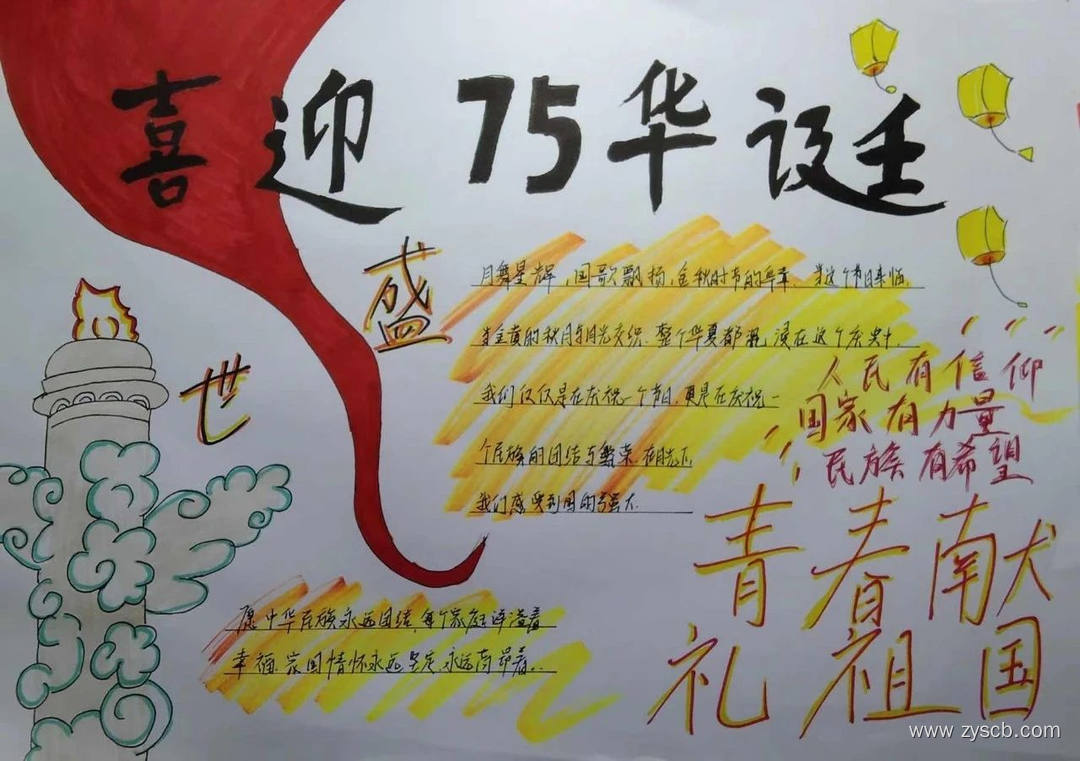 喜迎75华诞
盛世
月舞星辉,国歌飘扬,金秋时节的华章、当这个节日来临,
当金黄的秋月与月光交织、整个华夏都沉浸在这个庆典中,
我们仅仅是在庆祝一个节日,更是在庆祝一
个民族的团结与繁荣,在月光下
我们感受到国的强大.
人民有信仰
国家有力量
民族有希望
青春献
礼祖国
愿中华民族永远团结,每个家庭洋溢着
幸福、家国情怀永远坚定,永远高昂着..
www.zyscb.com